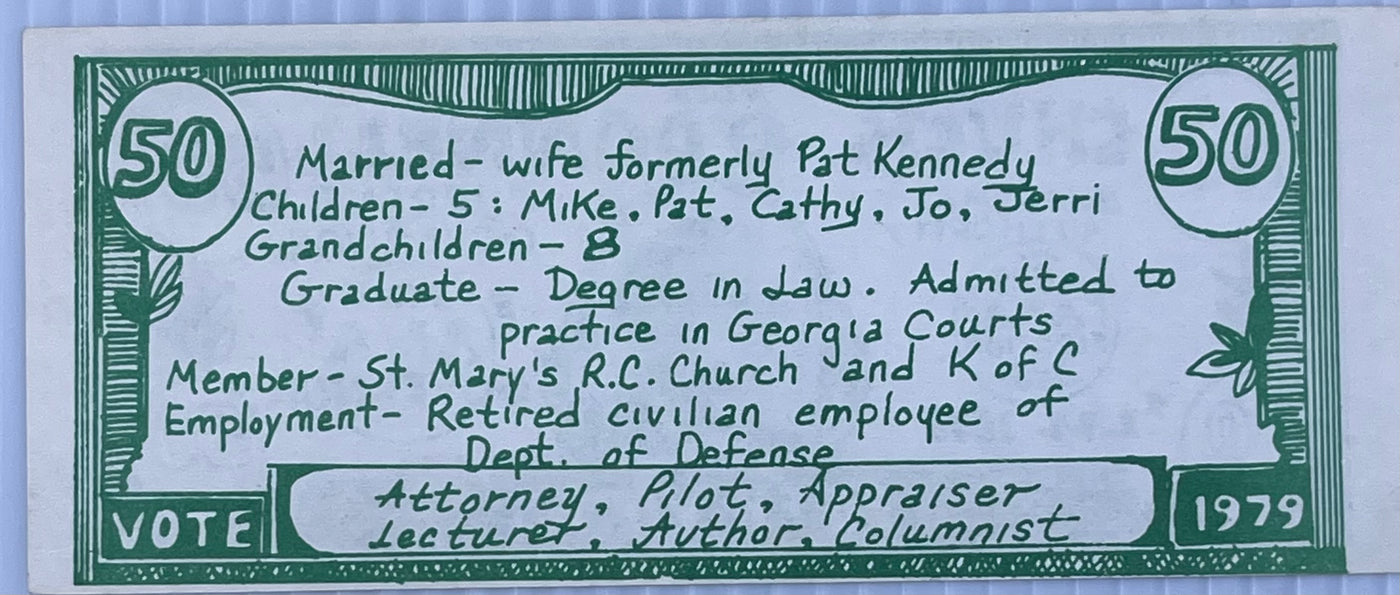 50 50
Married - wife formerly Pat Kennedy
Children - 5 : Mike, Pat, Cathy, Jo, Jerri
Grandchildren - 8
Graduate - Degree in Law. Admitted to
practice in Georgia Courts
Member - St. Mary's R.C. Church and K of C
Employment - Retired civilian employee of
Dept. of Defense
Attorney, Pilot, Appraiser
Lecturer, Author, Columnist
VOTE 1979